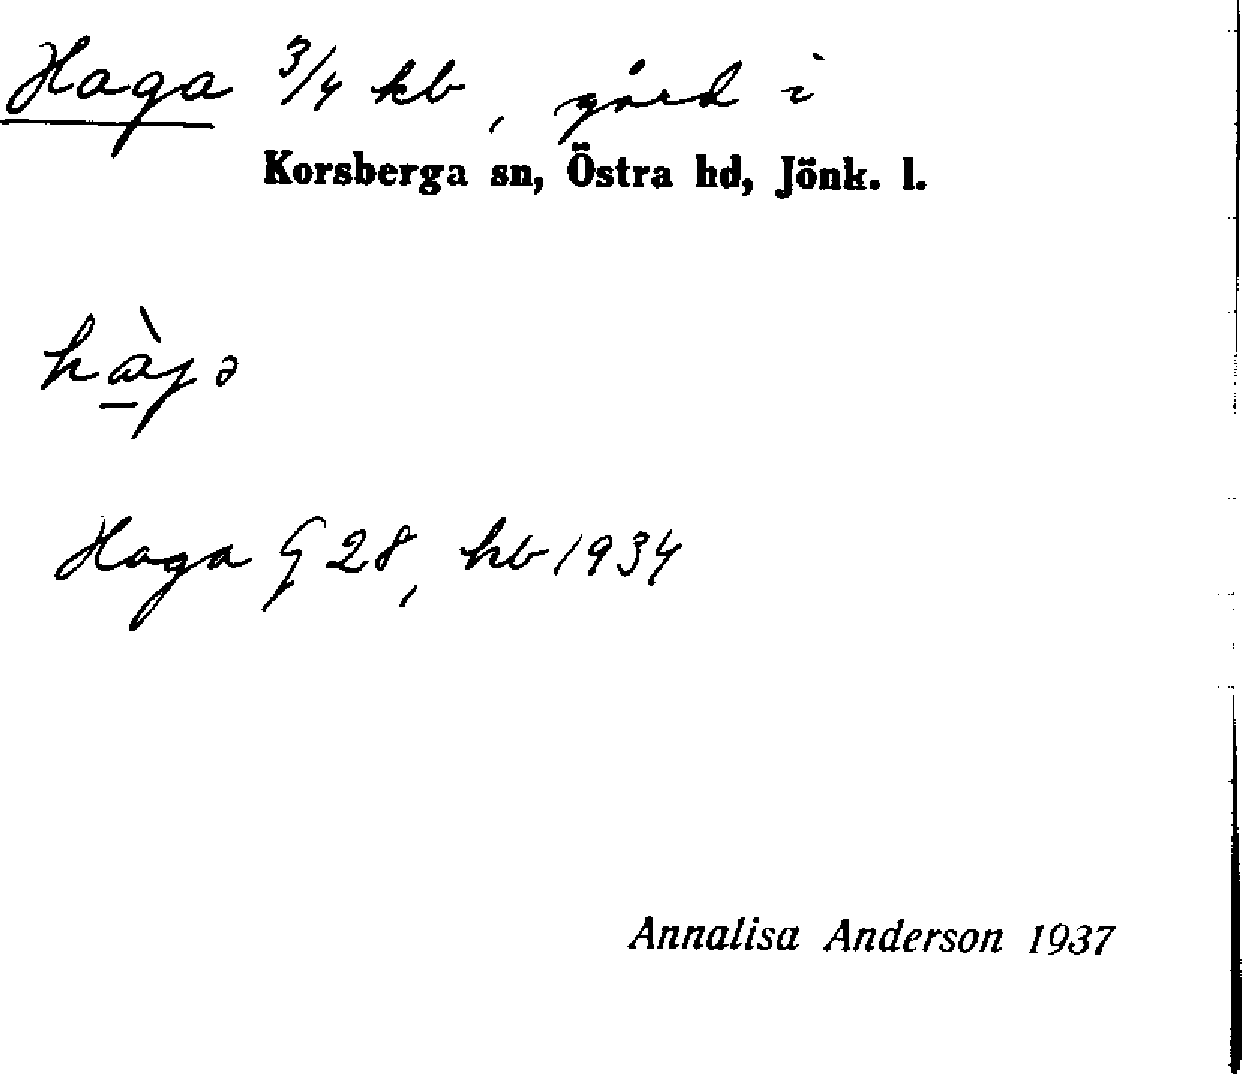 Haga 3/4 kb, gård i
Korsberga sn, Östra hd, Jönk. l.
Haga G 28, kb 1934
Annalisa Anderson 1937